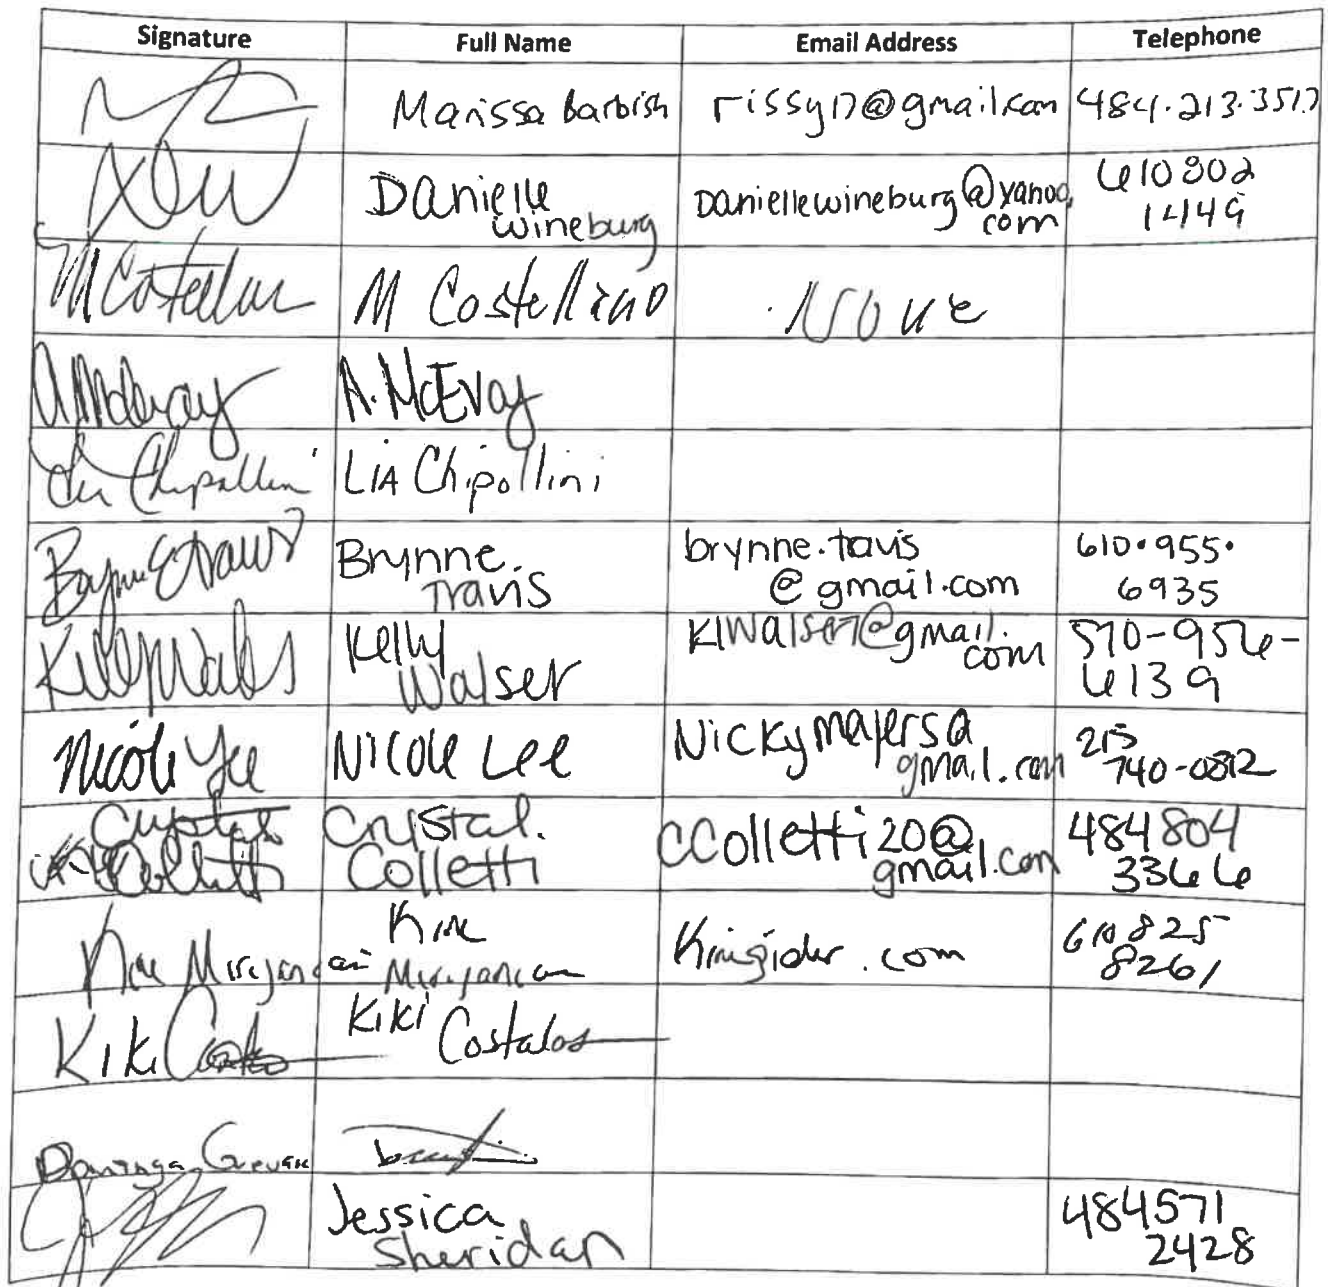 Signature Full Name Email Address Telephone
Marissa Barbish rissy17@gmail.com 484.213.3517
Danielle
wineburg
Daniellewineburg@yahoo.
com
610 802
1449
M Costellano None
A. McEvoy
Lia Chipollini LiA Chipollini
Brynne
Travis
brynne.travis
@gmail.com
610.955.
6935
Kelly
Walser
klwalser7@gmail.
com
570-956-
6139
Nicole Lee Nicole Lee
Nickymayers@
gmail.com
215
740-0812
Crystal
Colletti
Crystal
Colletti
CColletti20@
gmail.com
484 804
3366
Kim
610 825
8261
Kiki Kiki Costalos
Dominga
Jessica
Sheridan
484571
2428